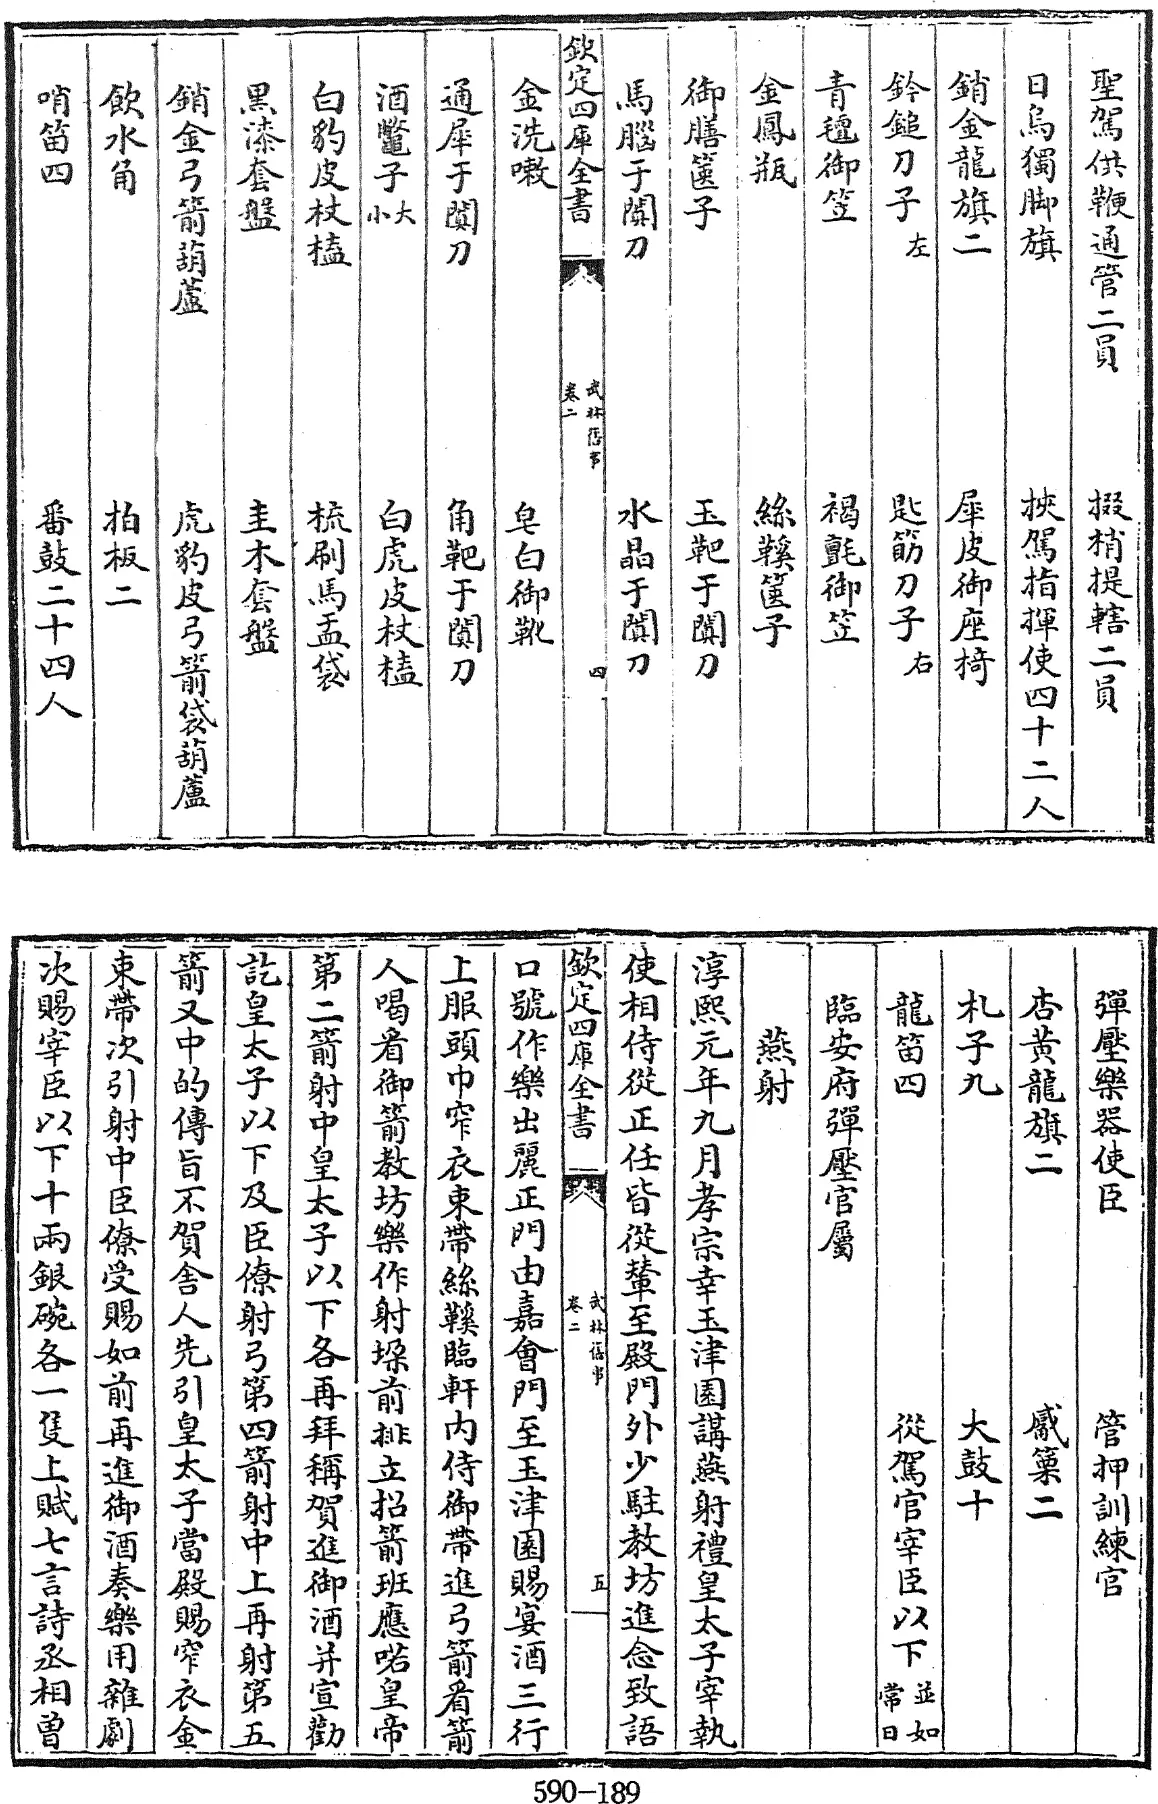 聖駕供鞭通管二員　掇梢提轄二員
日烏獨脚旗　挾駕指揮使四十二人
銷金龍旗二　犀皮御座椅
鈐鎚刀子左　匙筯刀子右
青氊御笠　褐氈御笠
金鳳瓶　絲鞵篋子
御膳篋子　玉靶于闐刀
馬腦于闐刀　水晶于闐刀
欽定四庫全書　武林舊事卷二　四
金洗嗽　皂白御靴
通犀于闐刀　角靶于闐刀
酒鼈子大小　白虎皮杖榼
白豹皮杖榼　梳刷馬盂袋
黒漆套盤　圭木套盤
銷金弓箭葫蘆　虎豹皮弓箭袋葫蘆
飲水角　拍板二
哨笛四　番鼓二十四人
彈壓樂器使臣　管押訓練官
杏黄龍旗二　觱篥二
札子九　大鼓十
龍笛四　從駕官宰臣以下並如常日
臨安府彈壓官屬
燕射
淳熙元年九月孝宗幸玉津園講燕射禮皇太子宰執
使相侍從正任皆從輦至殿門外少駐教坊進念致語
欽定四庫全書　武林舊事卷二　五
口號作樂出麗正門由嘉會門至玉津園賜宴酒三行
上服頭巾窄衣束帶絲鞵臨軒内侍御帶進弓箭看箭
人喝看御箭教坊樂作射垜前排立招箭班應喏皇帝
第二箭射中皇太子以下各再拜稱賀進御酒并宣勸
訖皇太子以下及臣僚射弓第四箭射中上再射第五
箭又中的傳旨不賀舎人先引皇太子當殿賜窄衣金
束帶次引射中臣僚受賜如前再進御酒奏樂用雜劇
次賜宰臣以下十兩銀碗各一隻上賦七言詩丞相曽
590-189